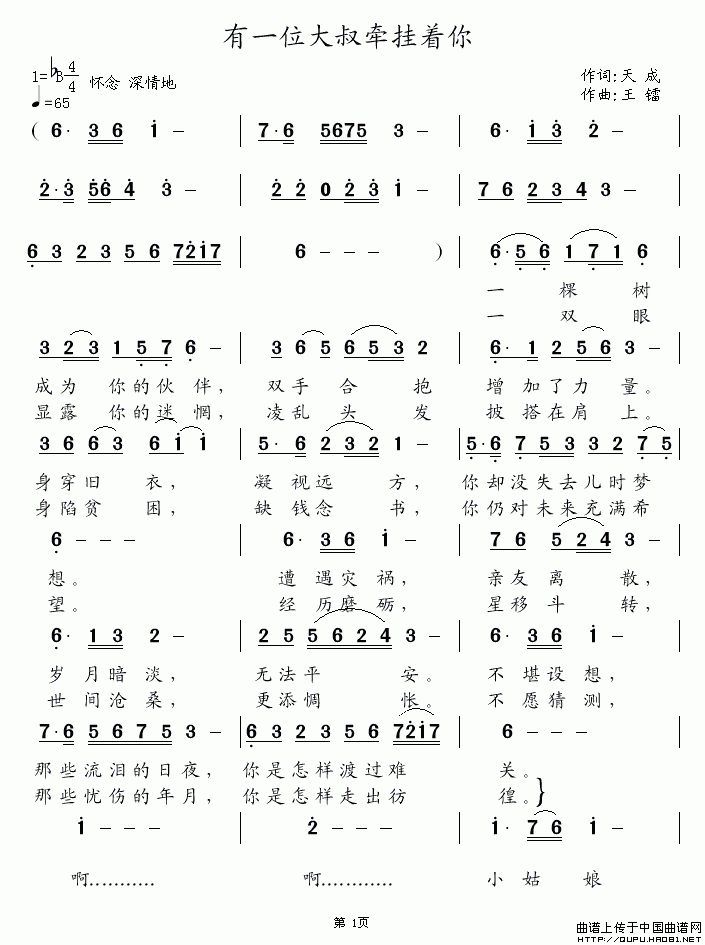 有一位大叔牵挂着你
1=♭B 4/4 怀念 深情地
♩=65
作词:天 成
作曲:王 镭
( 6· 3 6 i - | 7·6 5675 3 - | 6· i 3 2 - |
2·3 56 4 3 - | 2 2 0 2 3 i - | 7 6 2 3 4 3 - |
6 3 2 3 5 6 7 2 i 7 | 6 - - ) | 6·5 6 1 7 1 6 |
一 棵 树
一 双 眼
3 2 3 1 5 7 6 - | 3 6 5 6 5 3 2 | 6· 1 2 5 6 - |
成为 你的伙 伴, 双手 合 抱 增 加了力 量。
显露 你的迷 惘, 凌乱 头 发 披 搭在肩 上。
3 6 6 3 6 i i | 5· 6 2 3 2 1 | 5·6 7 5 3 3 2 7 5 |
身穿旧 衣, 凝 视远 方, 你却没失去儿时梦
身陷贫 困, 缺 钱念 书, 你仍对未来充满希
6 - - - | 6· 3 6 i - | 7 6 5 2 4 3 - |
想。 遭 遇灾 祸, 亲友 离 散,
望。 经 历磨 砺, 星移 斗 转,
6· 1 3 2 - | 2 5 5 6 2 4 3 - | 6· 3 6 i - |
岁 月暗 淡, 无法平 安。 不 堪设 想,
世 间沧 桑, 更添惆 怅。 不 愿猜 测,
7·6 5 6 7 5 3 - | 6 3 2 3 5 6 7 2 i 7 | 6 - - |
那些流泪的日夜, 你是怎样渡过难 关。
那些忧伤的年月, 你是怎样走出彷 徨。}
i - - | 2 - - | i· 7 6 i - |
啊............ 啊............ 小 姑 娘
第 1页
曲谱上传于中国曲谱网
HTTP://QUPU.HAO81.NET